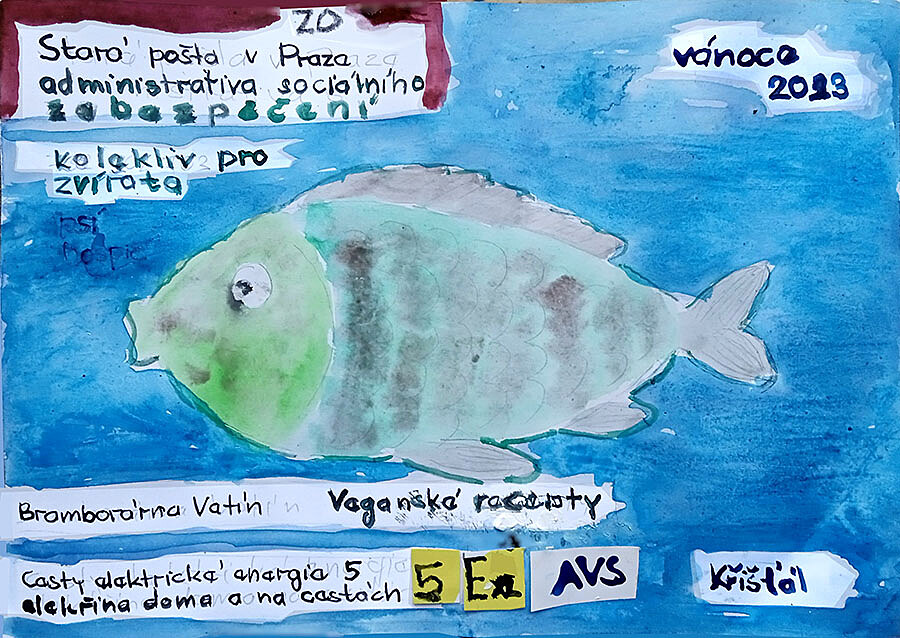 ZO
Stará pošta v Praza
administrativa sociálního
zabazpéčení
vánoca
2023
kolakliv pro
zvířata
psí
Bramborárna Vatín
Vaganská racapty
Casty alaktrická anargia 5
alakřina doma a na castách
5
AVS
Křišťál